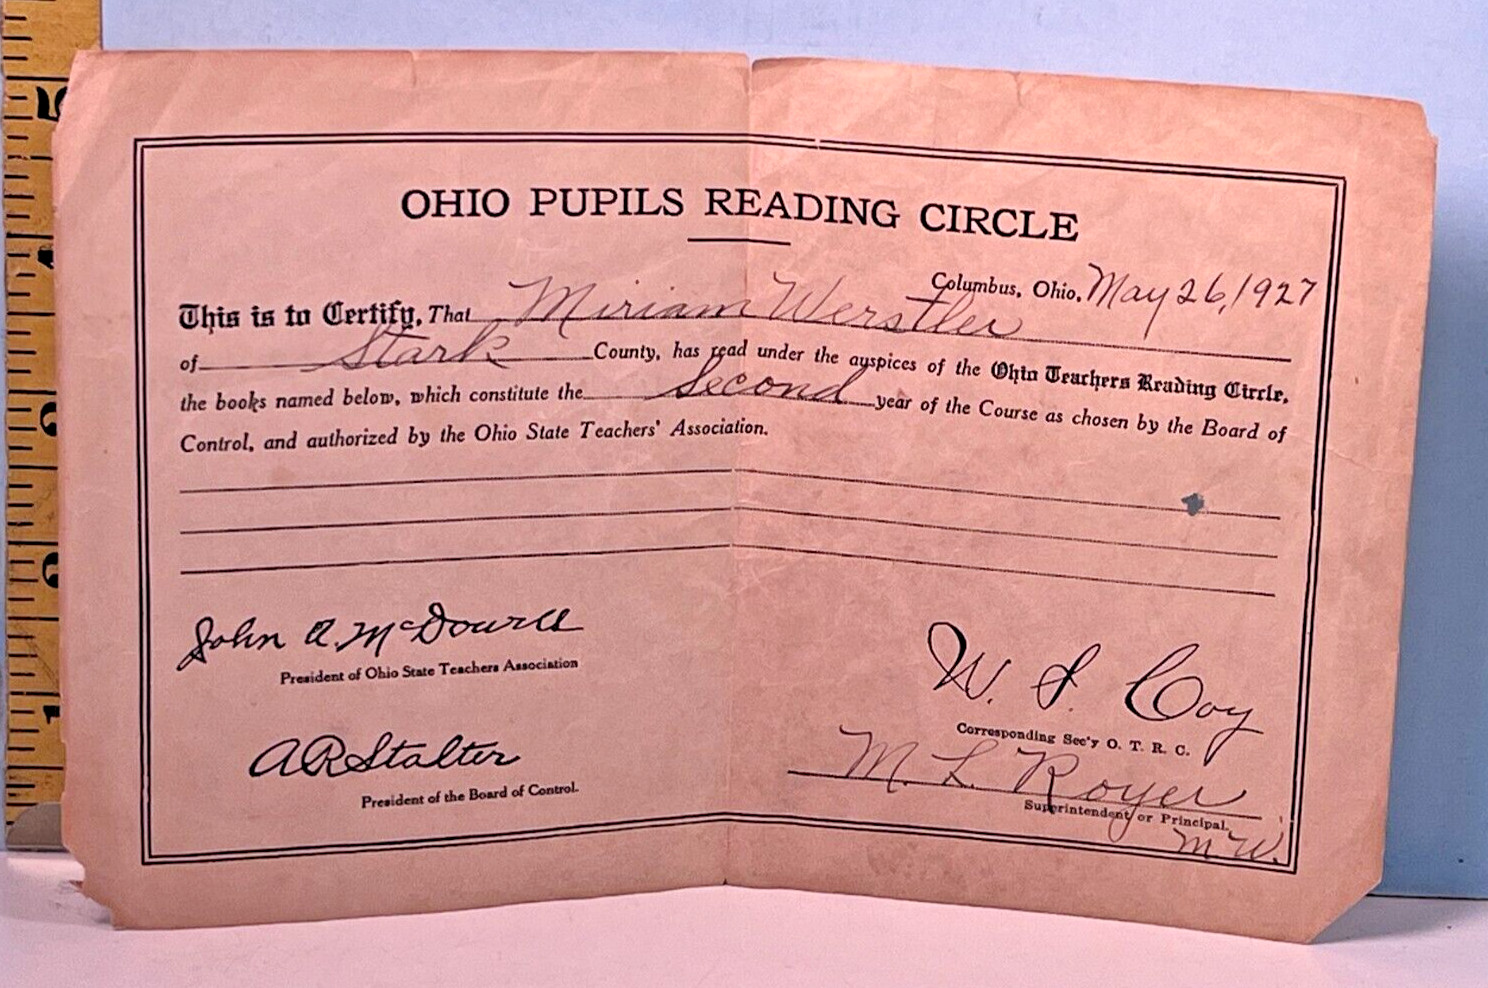 OHIO PUPILS READING CIRCLE
Columbus, Ohio, May 26, 1927
This is to Certify, That Miriam Werstler
of Stark County, has read under the auspices of the Ohio Teachers Reading Circle,
the books named below, which constitute the Second year of the Course as chosen by the Board of
Control, and authorized by the Ohio State Teachers' Association.
John A. McDowell
President of Ohio State Teachers Association
W. S. Coy
Corresponding Sec'y O. T. R. C.
A R Stalter
President of the Board of Control.
M. L. Royer
Superintendent or Principal.
M. W.